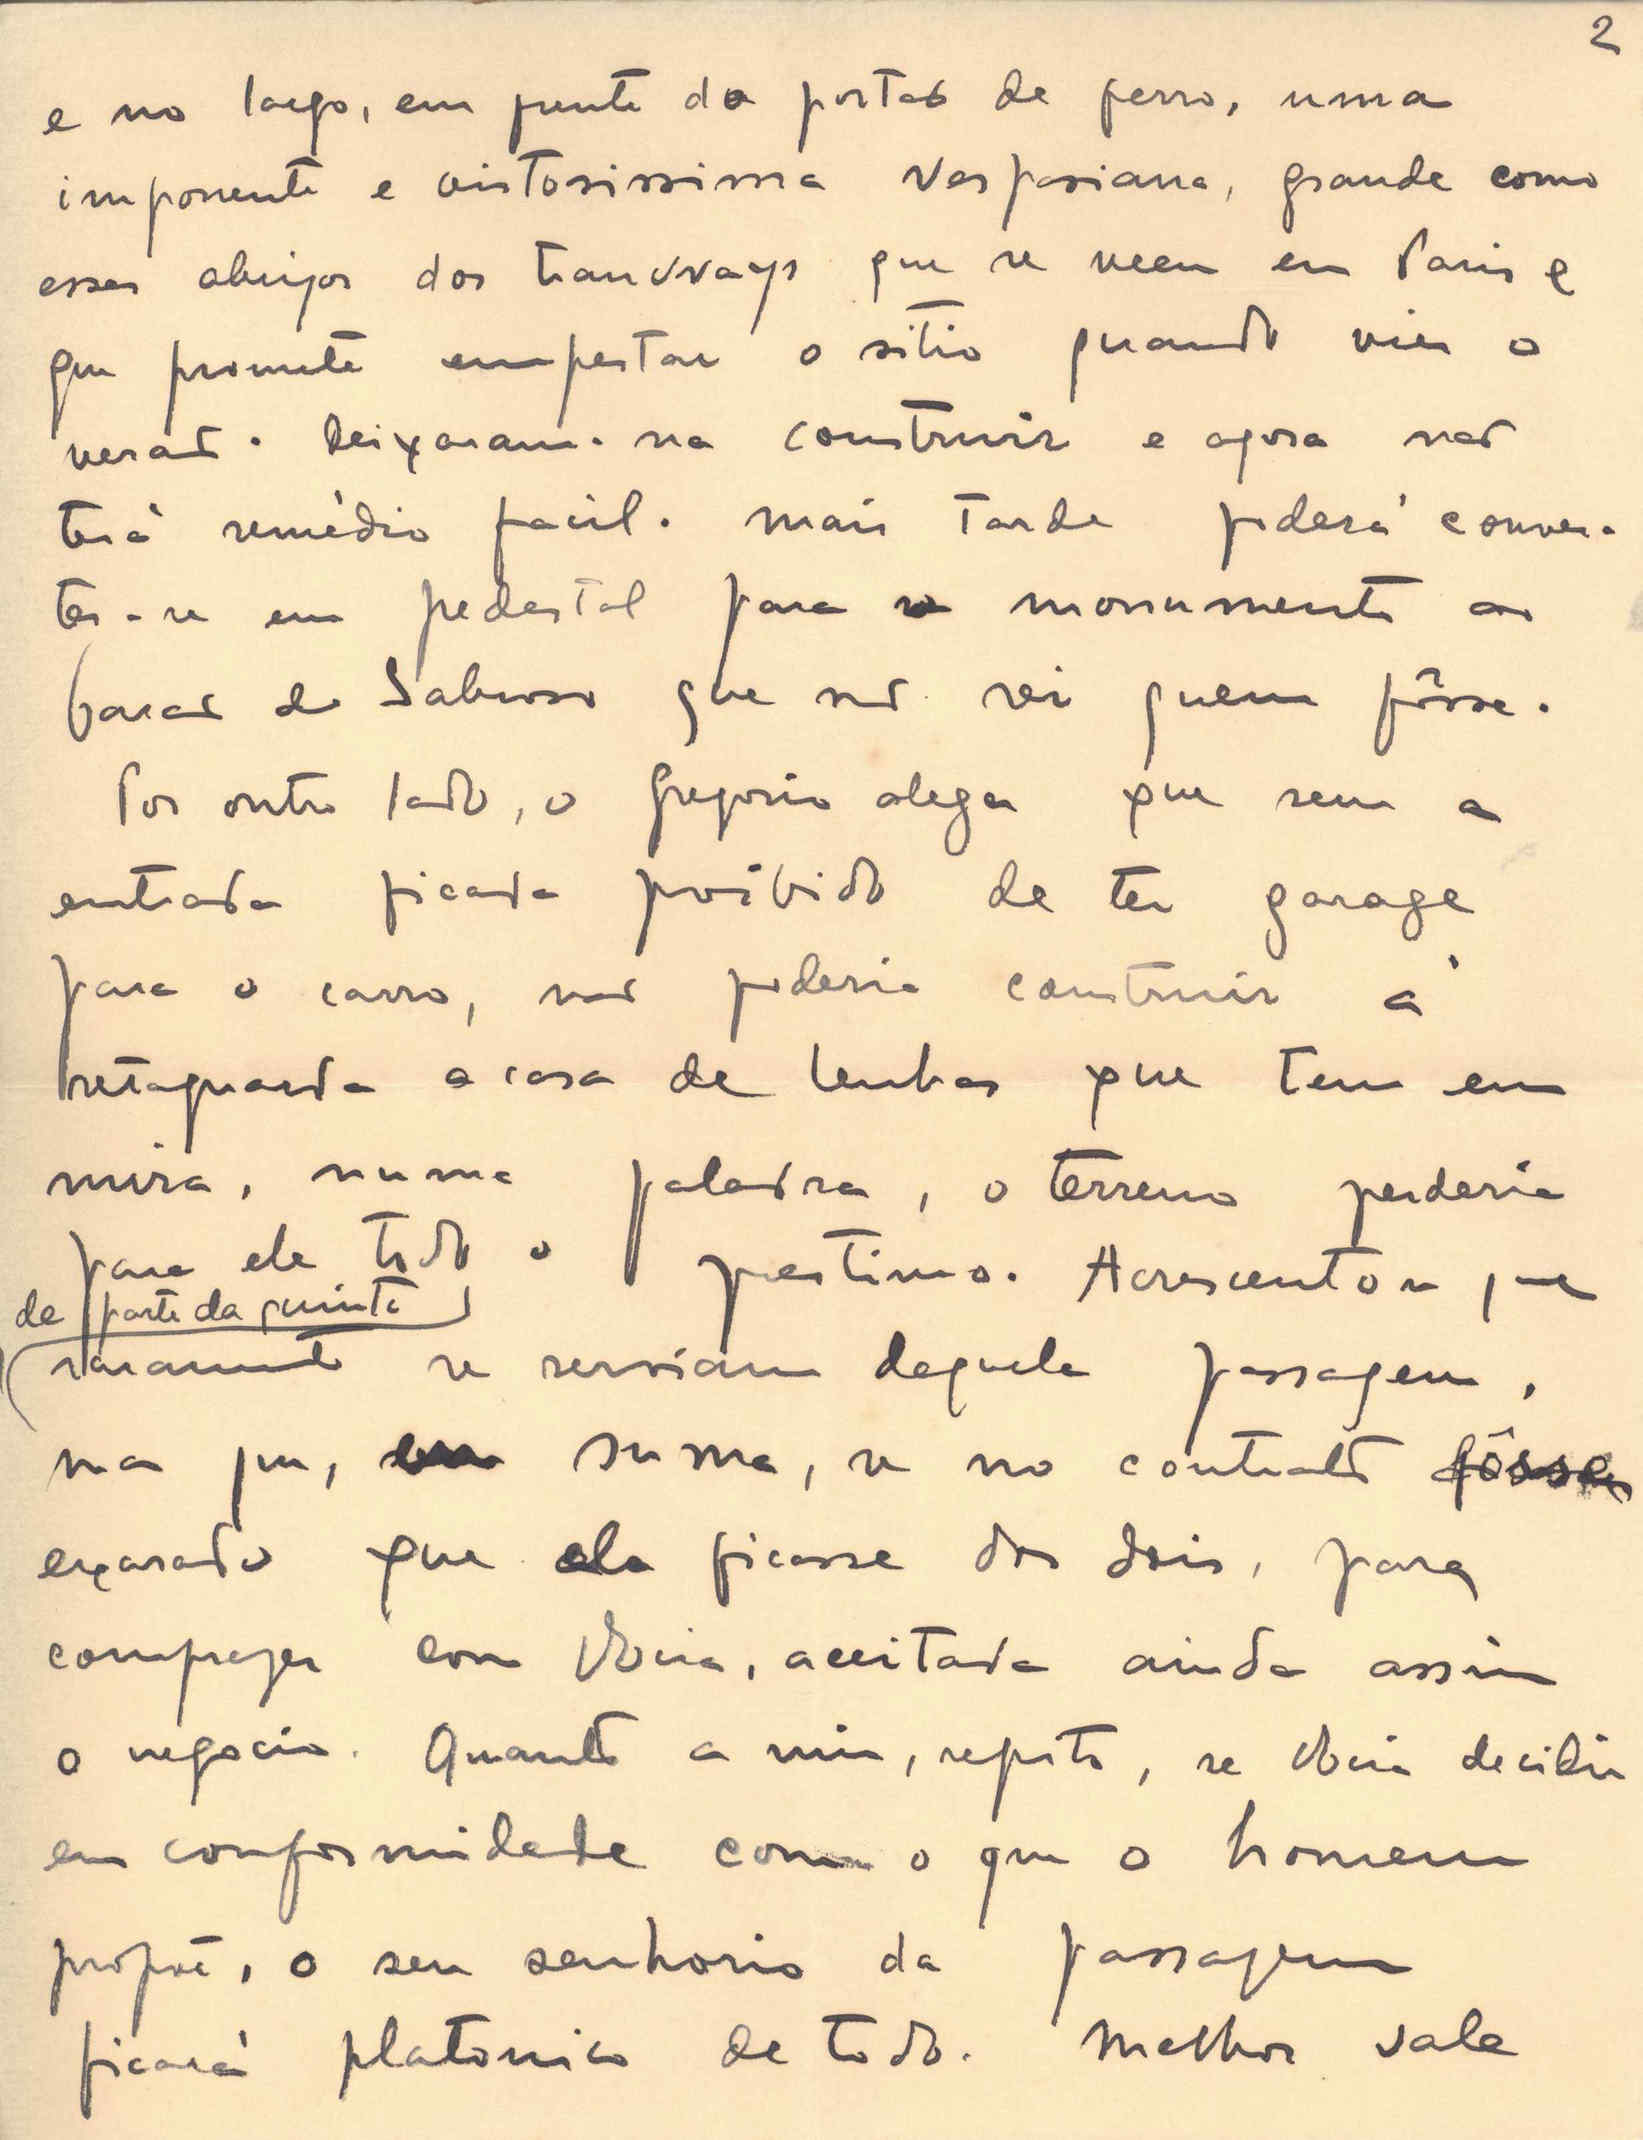 2
e no largo, em frente do portão de ferro, uma
imponente e vistosissima Vespasiana, grande como
esses abrigos dos tramways que se veem em Paris e
que promete empestar o sitio quando vier o
verão. Deixaram-na construir e agora não
terá remédio facil. Mais tarde poderá conver-
ter-se em pedestal para o monumento ao
barão de Sabroso que não sei quem fôsse.
Por outro lado, o Gregorio alega que sem a
entrada ficava proïbido de ter garage
para o carro, não poderia construir á
retaguarda a casa de lenhas que tem em
mira, numa palavra, o terreno perderia
para ele todo o prestimo. Acrescentou que
de parte da quinta
raramente se serviam daquela passagem,
mas que, em suma, se no contrato fôsse
exarado que ela ficasse dos dois, para
comprazer com Vocia, aceitava ainda assim
o negocio. Quanto a mim, repito, se Vocia decidir
em conformidade com o que o homem
propõe, o seu senhorio da passagem
ficará platonico de todo. Melhor vale